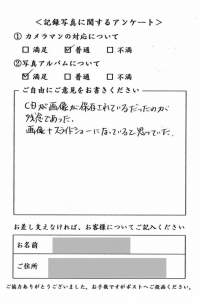 <記録写真に関するアンケート>
① カメラマンの対応について
□ 満足 ☑ 普通 □ 不満
②写真アルバムについて
☑ 満足 □ 普通 □ 不満
ご自由にご意見をお書きください
CDが画像が保存されているだったのが
残念であった。
画像+スライドショーになっていると思っていた。
お差し支えなければ、お客様についてご記入ください
お名前
ご住所
ご協力ありがとうございました。お手数ですがポストへご投函ください。